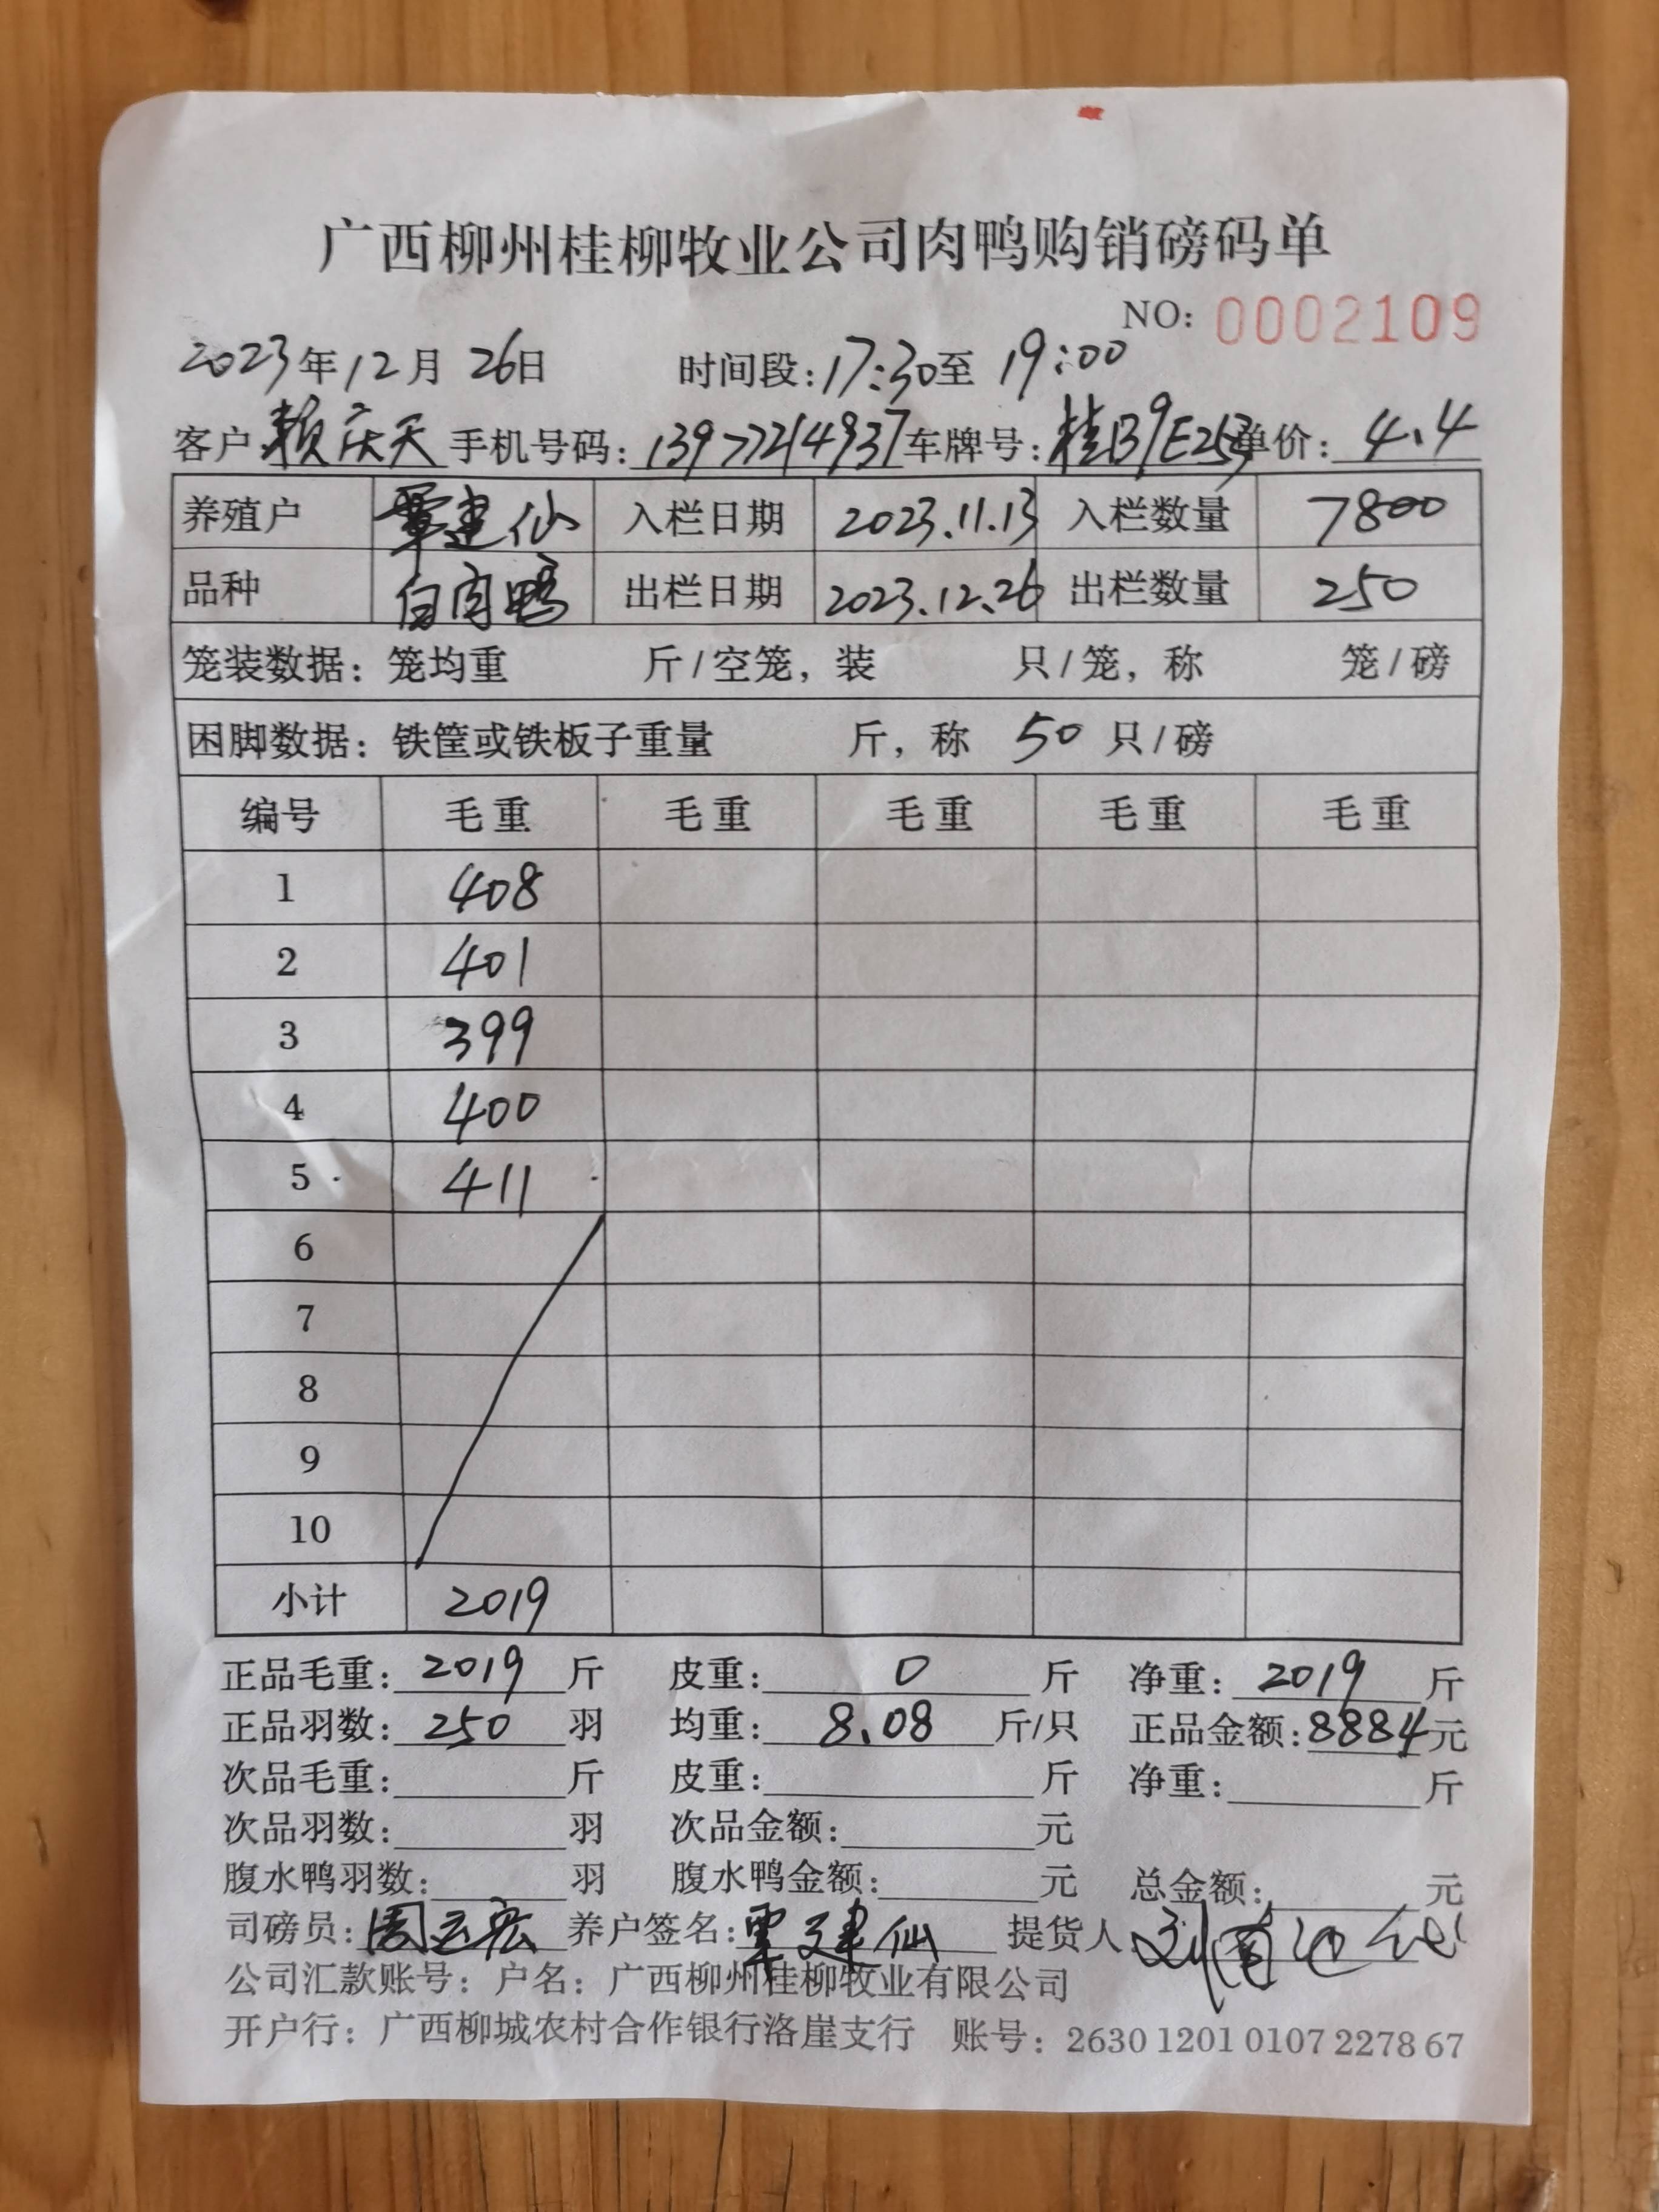 广西柳州桂柳牧业公司肉鸭购销磅码单
NO: 0002109
2023年12月26日 时间段:17:30至19:00
客户 赖庆天 手机号码: 13977214937 车牌号: 桂B9E253 单价: 4.4
养殖户 覃建仙 入栏日期 2023.11.13 入栏数量 7800
品种 白肉鸭 出栏日期 2023.12.26 出栏数量 250
笼装数据: 笼均重 斤/空笼, 装 只/笼, 称 笼/磅
困脚数据: 铁筐或铁板子重量 斤, 称 50 只/磅
编号 毛重 毛重 毛重 毛重 毛重
1 408
2 401
3 399
4 400
5 411
6
7
8
9
10
小计 2019
正品毛重: 2019 斤 皮重: 0 斤 净重: 2019 斤
正品羽数: 250 羽 均重: 8.08 斤/只 正品金额: 8884 元
次品毛重: 斤 皮重: 斤 净重: 斤
次品羽数: 羽 次品金额: 元
腹水鸭羽数: 羽 腹水鸭金额: 元 总金额: 元
司磅员: 周运宏 养户签名: 覃建仙 提货人: 刘
公司汇款账号: 户名: 广西柳州桂柳牧业有限公司
开户行: 广西柳城农村合作银行洛崖支行 账号: 2630 1201 0107 2278 67